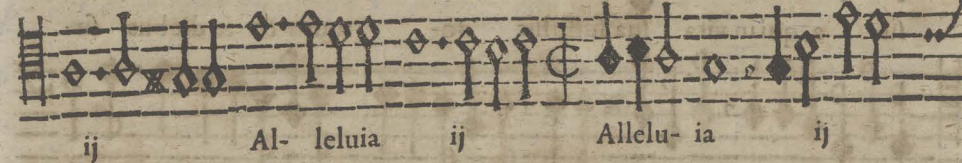 ij Al- leluia ij Allelu- ia ij